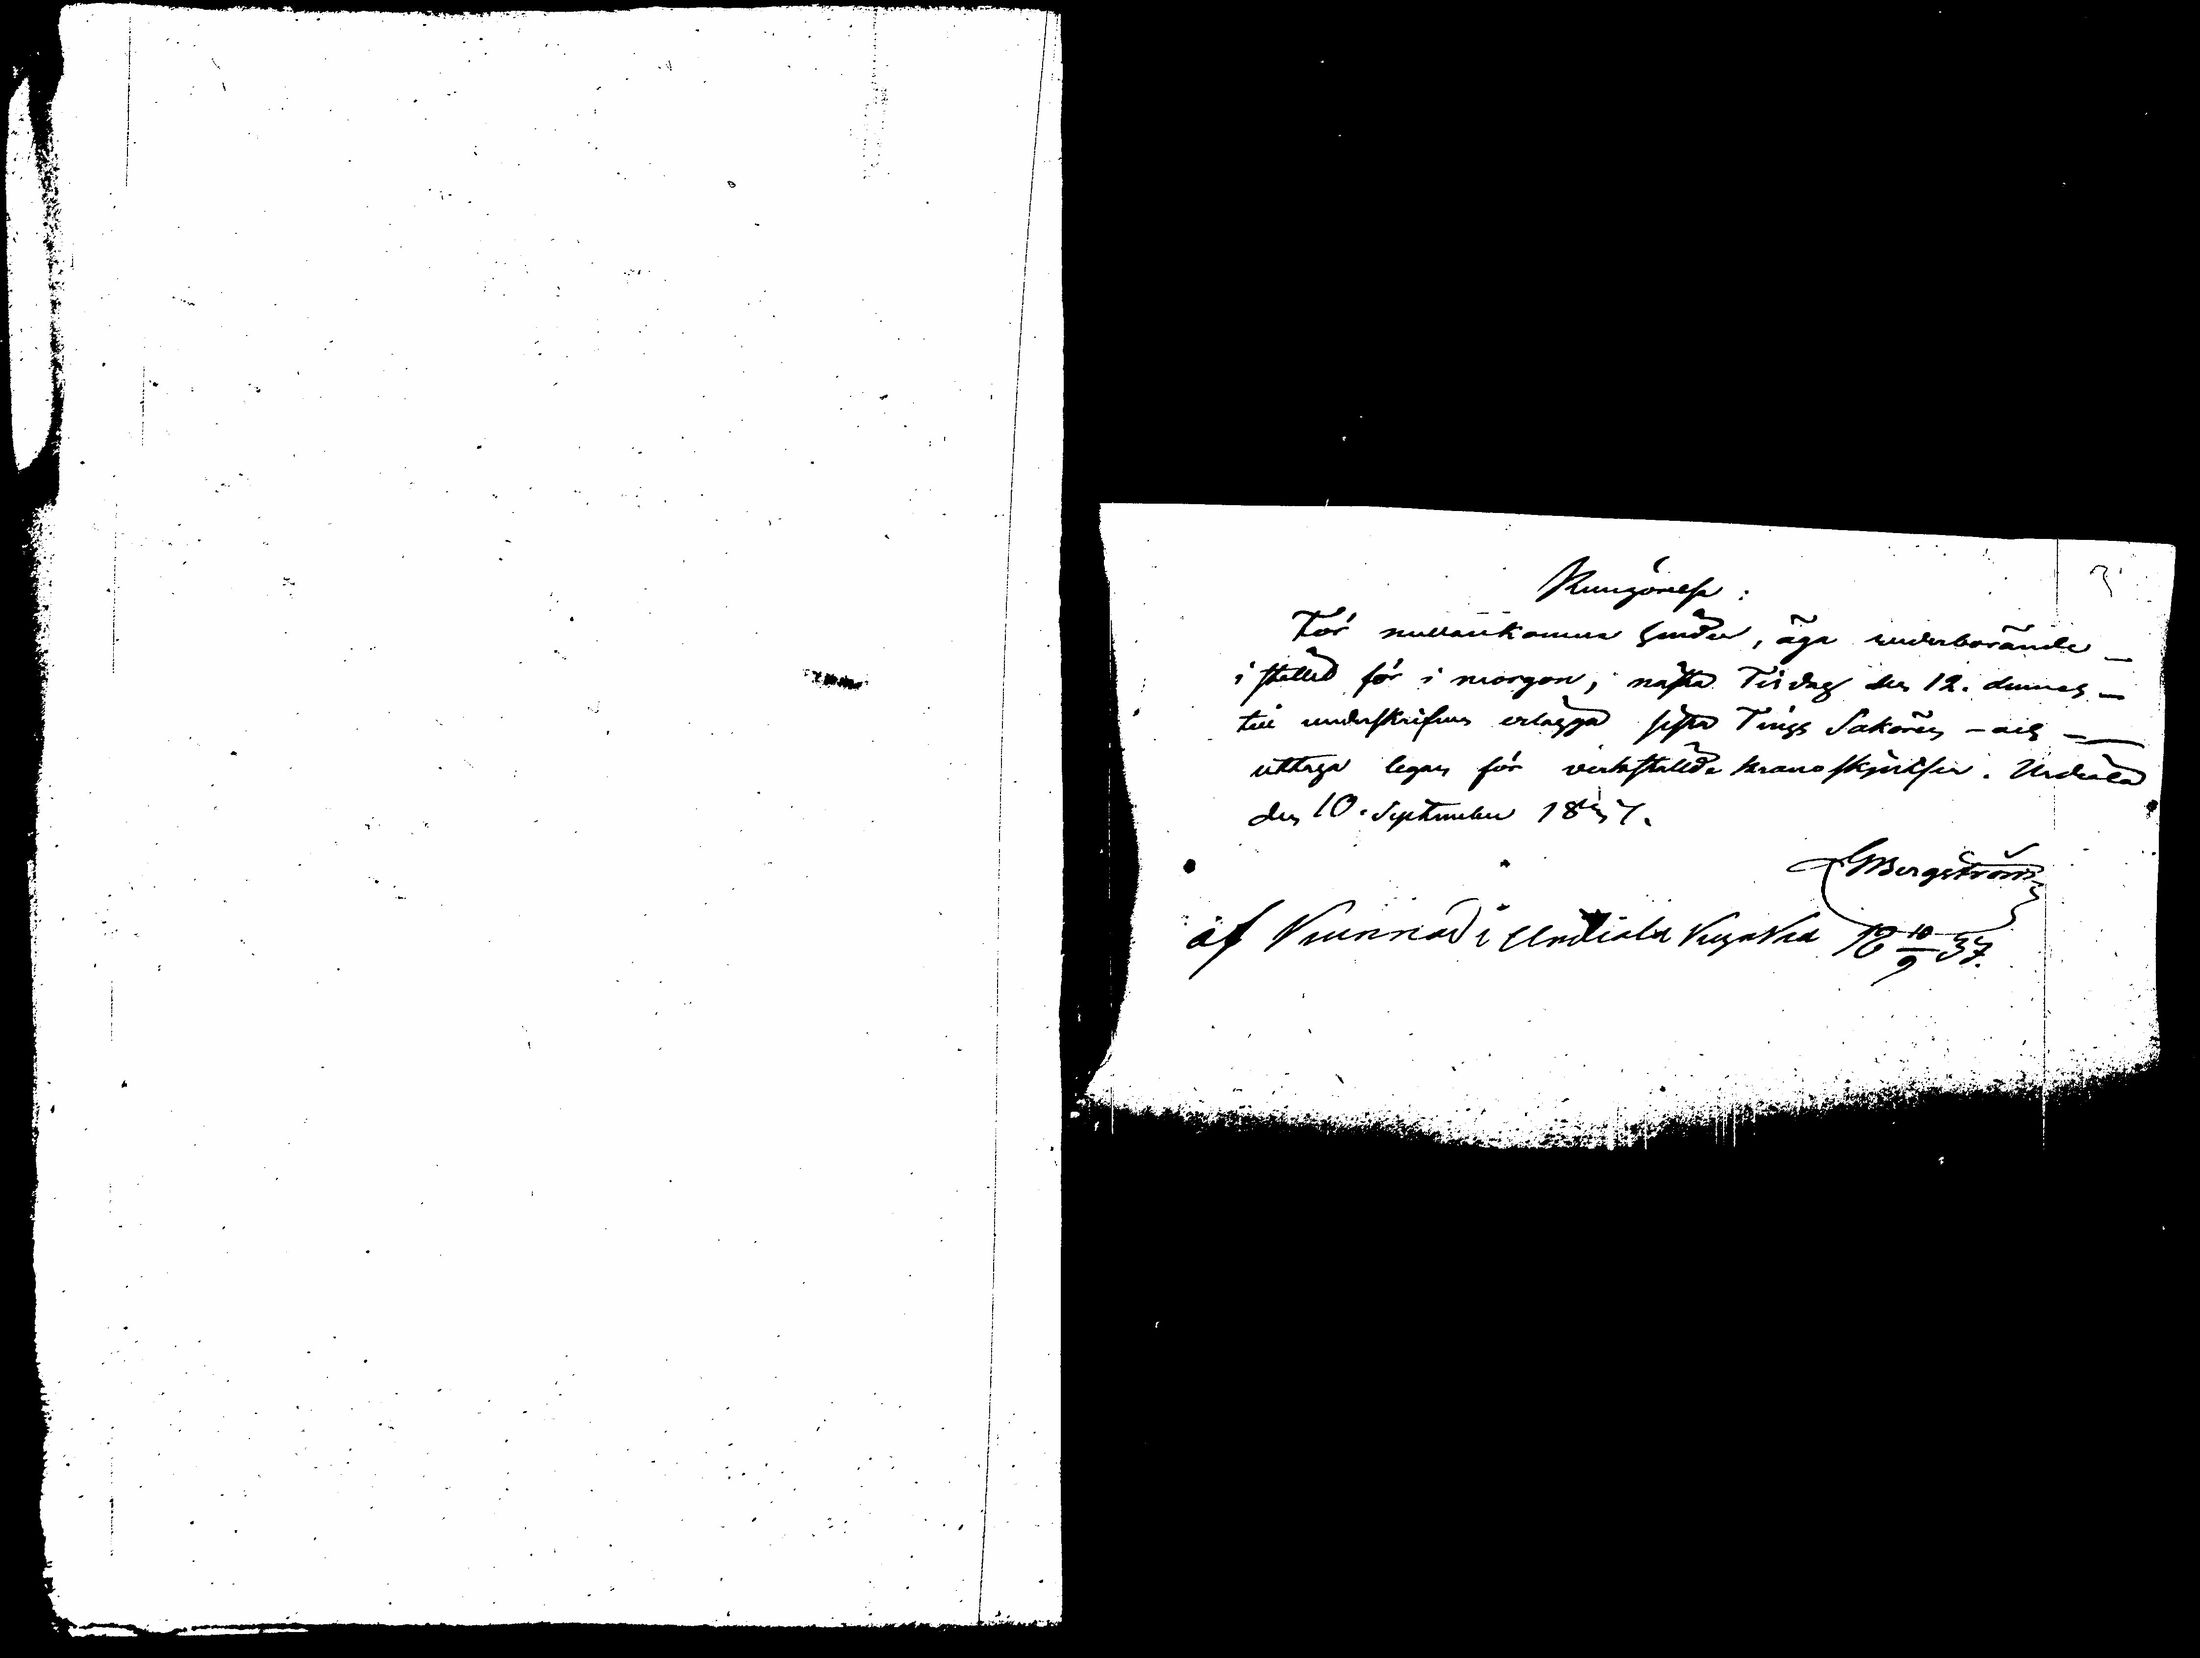 3
Kungörelse:
För mellankomne hinder, äga vederbörande
i stället för i morgon, nästa Tisdag den 12. dennes
till undertecknad erlägga sista Tings Saköre – och
uttaga legan för verkställde kronoskjutser. Urdiala
den 10. September 1837.
GMBergström
af Kunnad i Urdiala Kyrka 18 10/9 37.